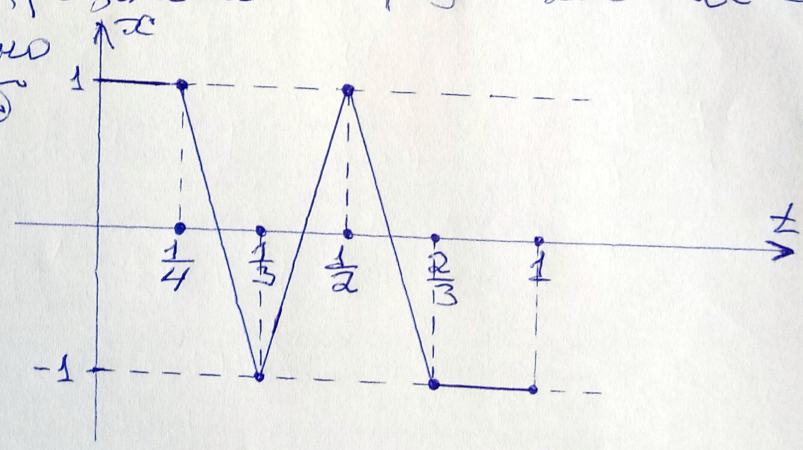 x
но
1
1/4 1/3 1/2 2/3 1
t
-1